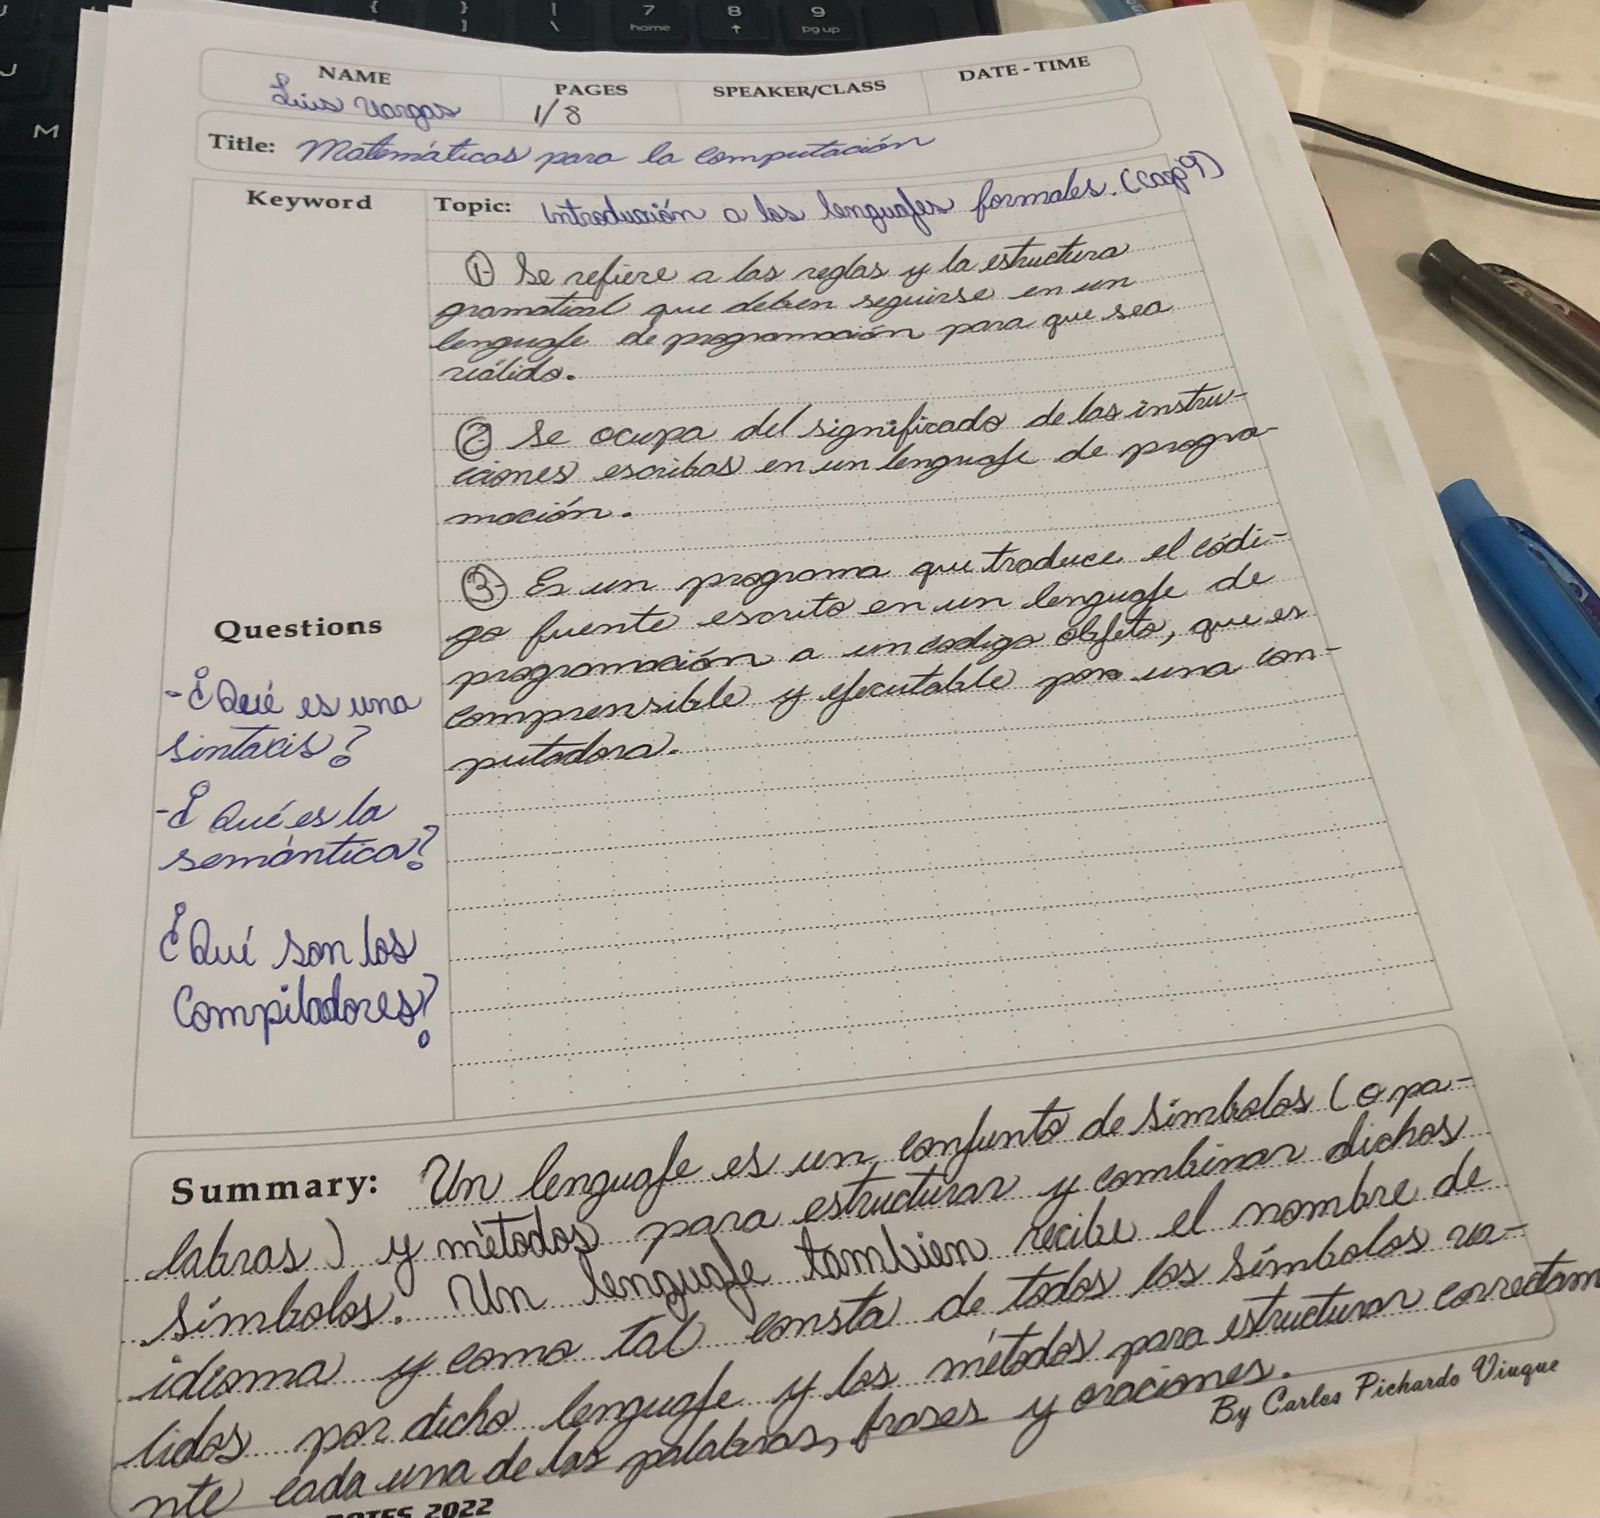 NAME
Luis Vargas
PAGES
1/8
SPEAKER/CLASS
DATE - TIME
Title: Matemáticas para la computación
Keyword
Topic: Introducción a los lenguajes formales. (cap 9)
1- Se refiere a las reglas y la estructura
gramatical que deben seguirse en un
lenguaje de programación para que sea
válido.
2- Se ocupa del significado de las instru-
cciones escribas en un lenguaje de progra-
mación.
3- Es un programa que traduce el códi-
go fuente escrito en un lenguaje de
programación a un codigo objeto, que es
comprensible y ejecutable para una com-
putadora.
Questions
- ¿Qué es una
sintaxis?
- ¿Qué es la
semántica?
¿Qué son los
Compiladores?
Summary: Un lenguaje es un conjunto de símbolos (o pa-
labras) y métodos para estructurar y combinar dichos
símbolos. Un lenguaje tambien recibe el nombre de
idioma y como tal consta de todos los símbolos vá-
lidos por dicho lenguaje y los métodos para estructurar correctam
nte cada una de las palabras, frases y oraciones.
By Carlos Pichardo Viuque
NOTES 2022
M
{
[
}
]
|
\
7
home
8
↑
9
pg up